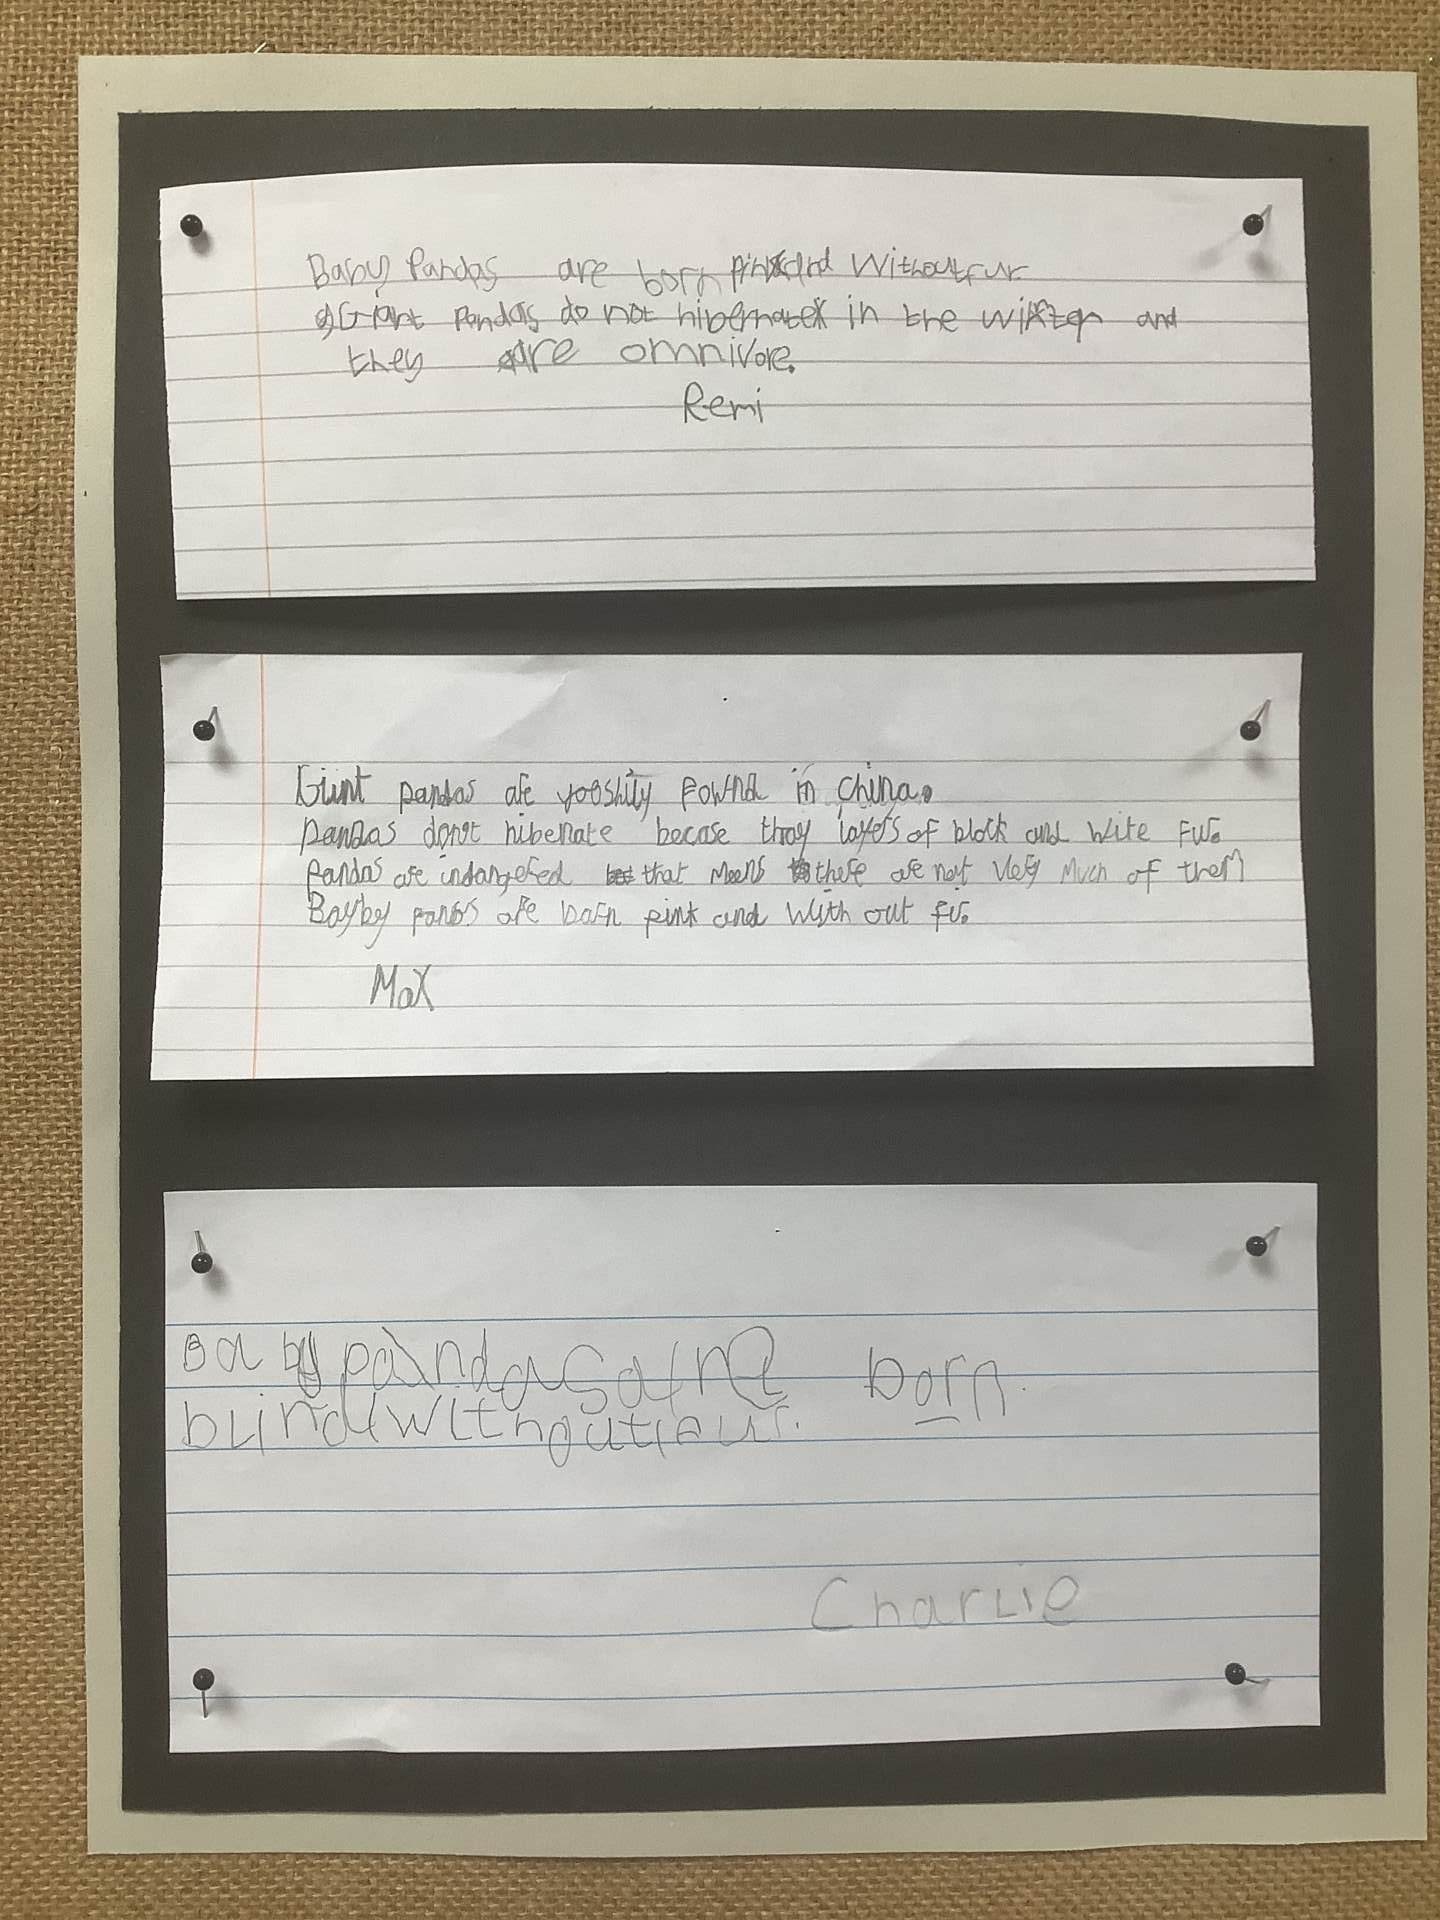 Baby Pandas are born pink and without fur
Giant Pandas do not hibernate in the winter and
they are omnivore.
Remi
Giint pandas are yooshily fownd in china.
pandas donst hibenate becase thay layers of black and wite fur.
Pandas are indangered that means there are not very much of them
Bayby pandas are barn pink and with out fur.
Max
Baby pandas are born
blind without fur.
Charlie